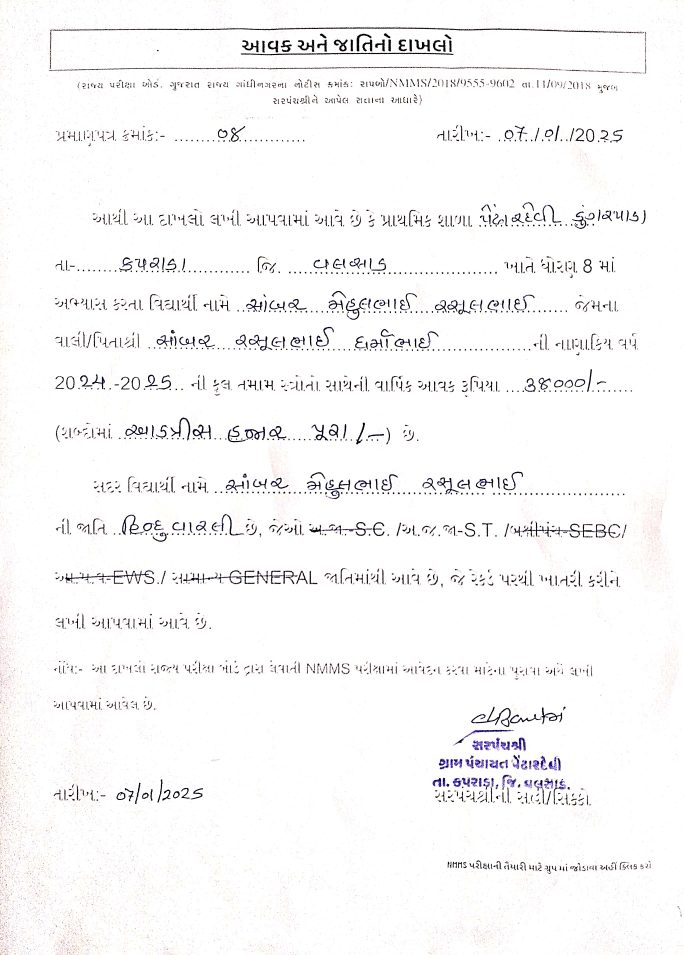 આવક અને જાતિનો દાખલો
(રાજ્ય પરીક્ષા બોર્ડ, ગુજરાત રાજ્ય ગાંધીનગરના નોટીસ ક્રમાંક: રાપબો/NMMS/2018/9555-9602 તા.11/09/2018 મુજબ
સરપંચશ્રીને આપેલ સત્તાના આધારે)
પ્રમાણપત્ર ક્રમાંક:- ........૦૪............ તારીખ:- ..૦7../૦1../2025
આથી આ દાખલો લખી આપવામાં આવે છે કે પ્રાથમિક શાળા પેંઢારદેવી ડુંગરપાડા
તા-.......કપરાડા........... જિ. ....વલસાડ.................. ખાતે ધોરણ 8 માં
અભ્યાસ કરતા વિદ્યાર્થી નામે ..સાંબર મેહુલભાઈ રસૂલભાઈ...... જેમના
વાલી/પિતાશ્રી ..સાંબર રસૂલભાઈ ધર્માભાઈ...............ની નાણાકિય વર્ષ
2024.-2025.. ની કૂલ તમામ સ્ત્રોતો સાથેની વાર્ષિક આવક રૂપિયા ...૩૮૦૦૦/-......
(શબ્દોમાં ..આડત્રીસ હજાર પૂરા/-) છે.
સદર વિદ્યાર્થી નામે ..સાંબર મેહુલભાઈ રસૂલભાઈ..................
ની જાતિ ..હિન્દુ વારલી.. છે, જેઓ અ.જા.-S.C. /અ.જ.જા-S.T. /બક્ષીપંચ-SEBC/
આ.પ.વ-EWS./ સામાન્ય GENERAL જાતિમાંથી આવે છે, જે રેકર્ડ પરથી ખાતરી કરીને
લખી આપવામાં આવે છે.
નોંધ:- આ દાખલો રાજ્ય પરીક્ષા બોર્ડ દ્વારા લેવાતી NMMS પરીક્ષામાં આવેદન કરવા માટેના પુરાવા અર્થે લખી
આપવામાં આવેલ છે.
સરપંચશ્રી
ગ્રામ પંચાયત પેંઢારદેવી
તા. કપરાડા, જિ. વલસાડ.
તારીખ:- 07/01/2025 સરપંચશ્રીની સહી/સિક્કો
NMMS પરીક્ષાની તૈયારી માટે ગ્રુપ માં જોડાવા અહીં ક્લિક કરો